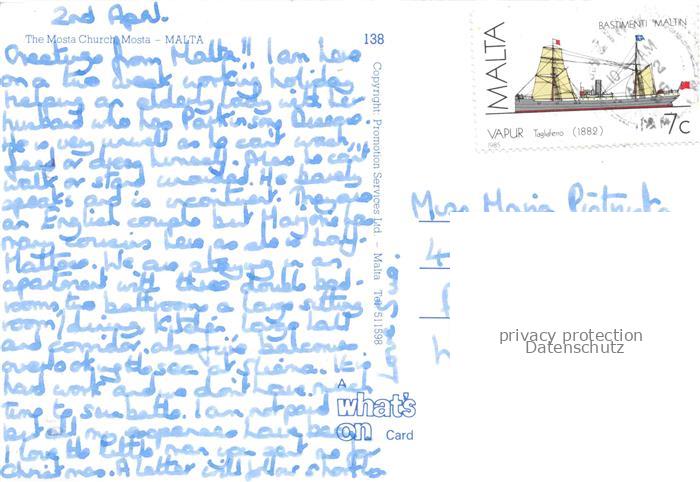 2nd Apr.
The Mosta Church, Mosta – MALTA
138
Greetings from Malta!! I am here
on a two week working holiday
helping an elderly lady with her
husband who has Parkinsons Disease.
He is very unwell as he can't wash,
feed or dress himself. Also he can't
walk or stand unaided. He barely
speaks and is incontinent. They are
an English couple but Marjorie has
many cousins here as she is half
Maltese. We are staying in an
apartment with three double bed-
rooms two bathrooms a large sitting
room/dining kitchen large hall
and corridor also five balconies
overlooking the sea at Sliema. It is
hard work and we don't have much
time to sunbathe. I am not paid
but all my expenses have been.
I love the little man you sent me for
Christmas. A letter will follow shortly
Copyright Promotion Services Ltd. – Malta Tel: 511598
A
what's
on Card
MALTA
BASTIMENTI MALTIN
VAPUR Tagliaferro (1882)
7c
1985
Miss Maria
4
privacy protection
Datenschutz